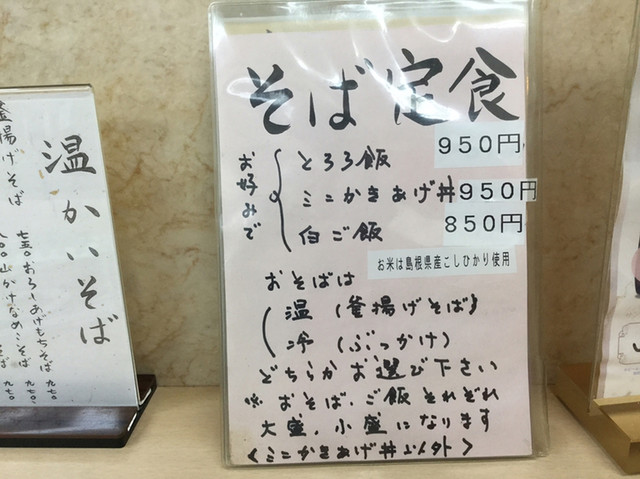 そば定食
お好みで
とろろ飯 950円
ミニかきあげ丼 950円
白ご飯 850円
お米は島根県産こしひかり使用
おそばは
温(釜揚げそば)
冷(ぶっかけ)
どちらかお選び下さい
※おそば、ご飯それぞれ
大盛、小盛になります
<ミニかきあげ丼以外>
温かいそば
釜揚げそば 七五〇